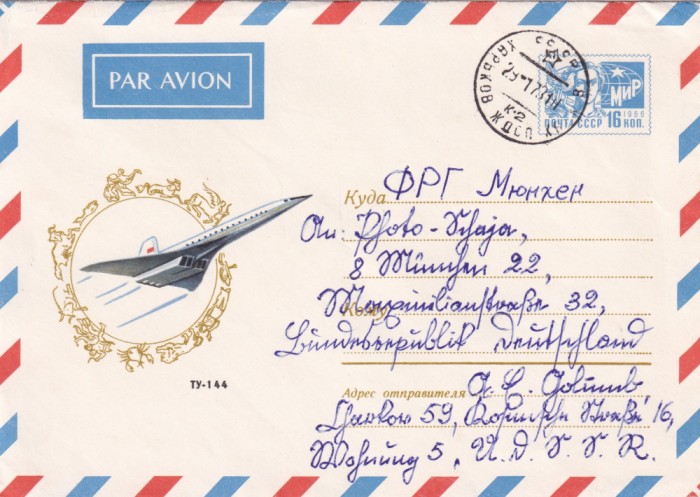 PAR AVION
СССР
ХАРЬКОВ
ПОЧТА СССР 16 КОП.
1966
МИР
Куда ФРГ Мюнхен
An: Photo-Schaja,
8 München 22,
Кому Maximilianstraße 32,
Bundesrepublik Deutschland
ТУ-144
Адрес отправителя
Charkow 59, Straße 16,
Wohnung 5, U.d.S.S.R.